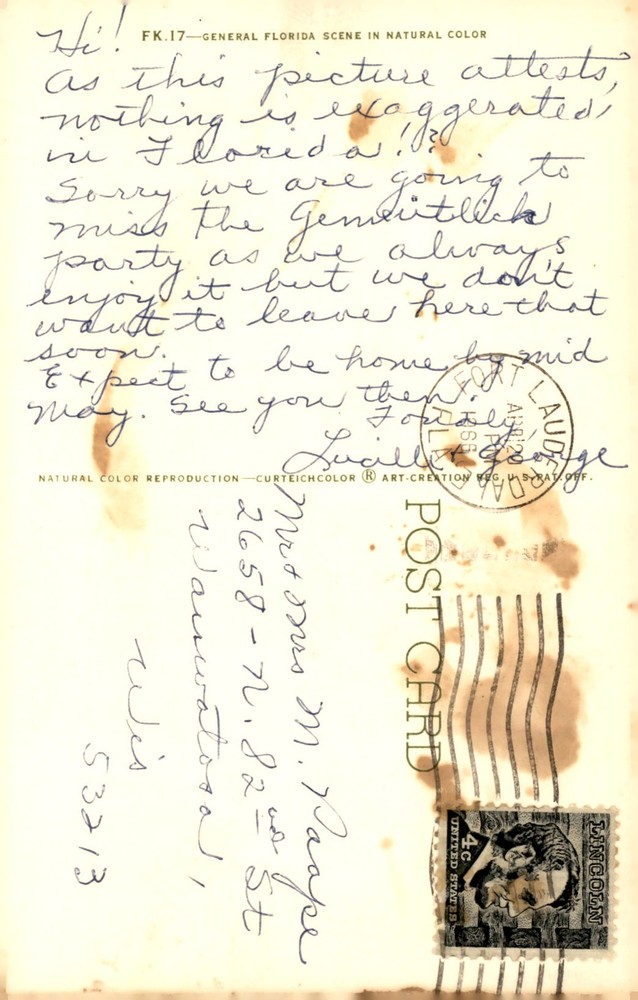 FK.17—GENERAL FLORIDA SCENE IN NATURAL COLOR
Hi!
As this picture attests,
nothing is exaggerated,
in Florida!?
Sorry we are going to
miss the Gemeütlich
party as we always
enjoy it but we don't
want to leave here that
soon.
Expect to be home by mid
May. See you then.
Fondly,
Lucille & George
NATURAL COLOR REPRODUCTION—CURTEICHCOLOR ® ART-CREATION REG. U.S. PAT. OFF.
FORT LAUDERDALE
FLA
APR 20
PM
POST CARD
Mr & Mrs M. Paape
2658-N. 82nd St
Wauwatosa,
Wis
53213
LINCOLN
4c
UNITED STATES